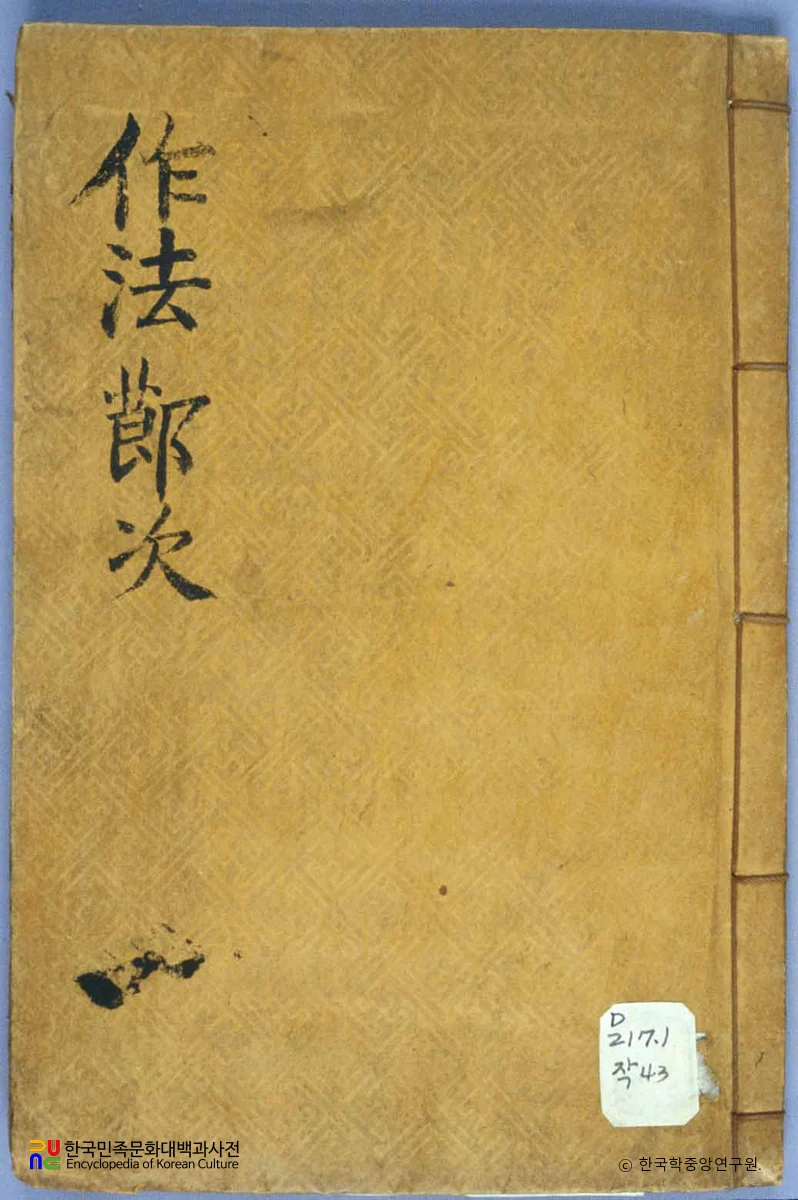 作法節次
D
217.1
작43
한국민족문화대백과사전
Encyclopedia of Korean Culture
ⓒ 한국학중앙연구원.